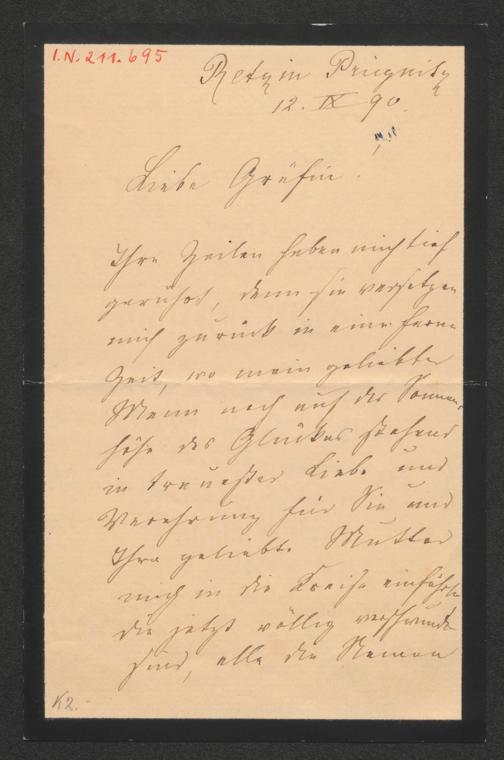 I.N. 211.695
Retzin Priegnitz
12. IX 90.
Liebe Gräfin.
Ihre Zeilen haben mich tief
gerührt, denn sie versetzen
mich zurück in eine ferne
Zeit, wo mein geliebter
Mann noch auf der Sonnen-
höhe des Glückes stehend
in treuester Liebe und
Verehrung für Sie und
Ihre geliebte Mutter
mich in die Kreise einführte
die jetzt völlig verschwunden
sind, alle die Namen
K2.-